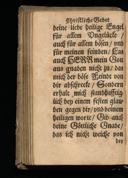 Christliche Gebet
deine liebe heilige Engel
für allem Unglücke /
auch für allem bösen / und
für meinen feinden / Laß
auch HERR mein Gott
aus gnaden nicht zu / das
mich der böse Feindt von
dir abschrecke / Sondern
erhale mich standthafftig-
lich bey einem festen glau-
ben gegen dir / und deinem
heiligen worte / Gib auch
deine Göttliche Gnade /
das ich nicht weiche von